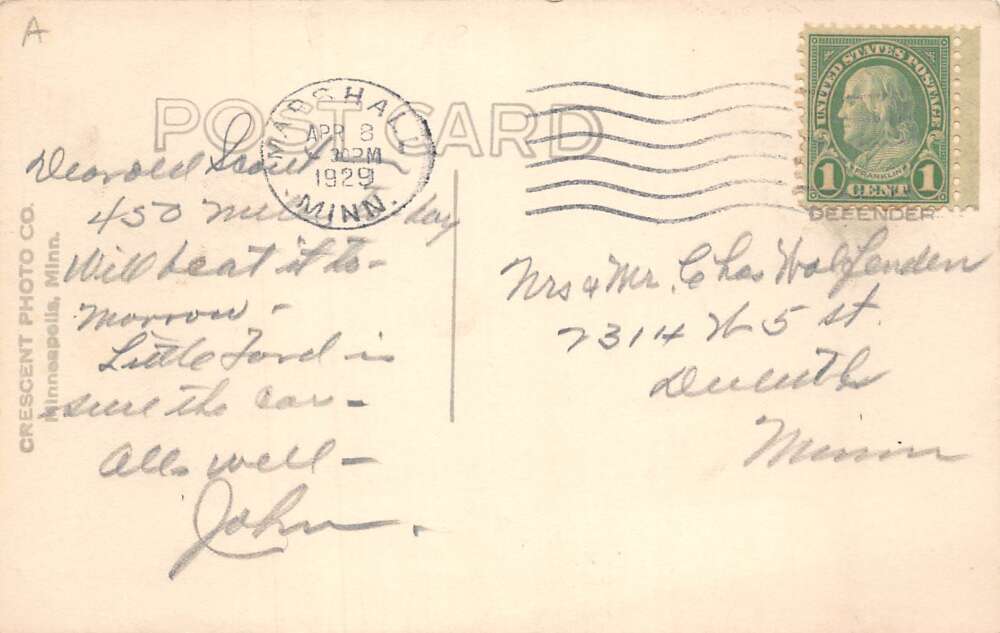 A
POST CARD
MARSHALL
APR 8
30PM
1929
MINN.
UNITED STATES POSTAGE
FRANKLIN
1 CENT 1
DEFENDER
Dear old Scout
450 day
Will beat it to-
morrow -
Little Ford is
sure the car -
All well -
John.
Mrs & Mr. Chas Wolfenden
2314 W 5 st.
Duluth
Minn
CRESCENT PHOTO CO.
Minneapolis, Minn.